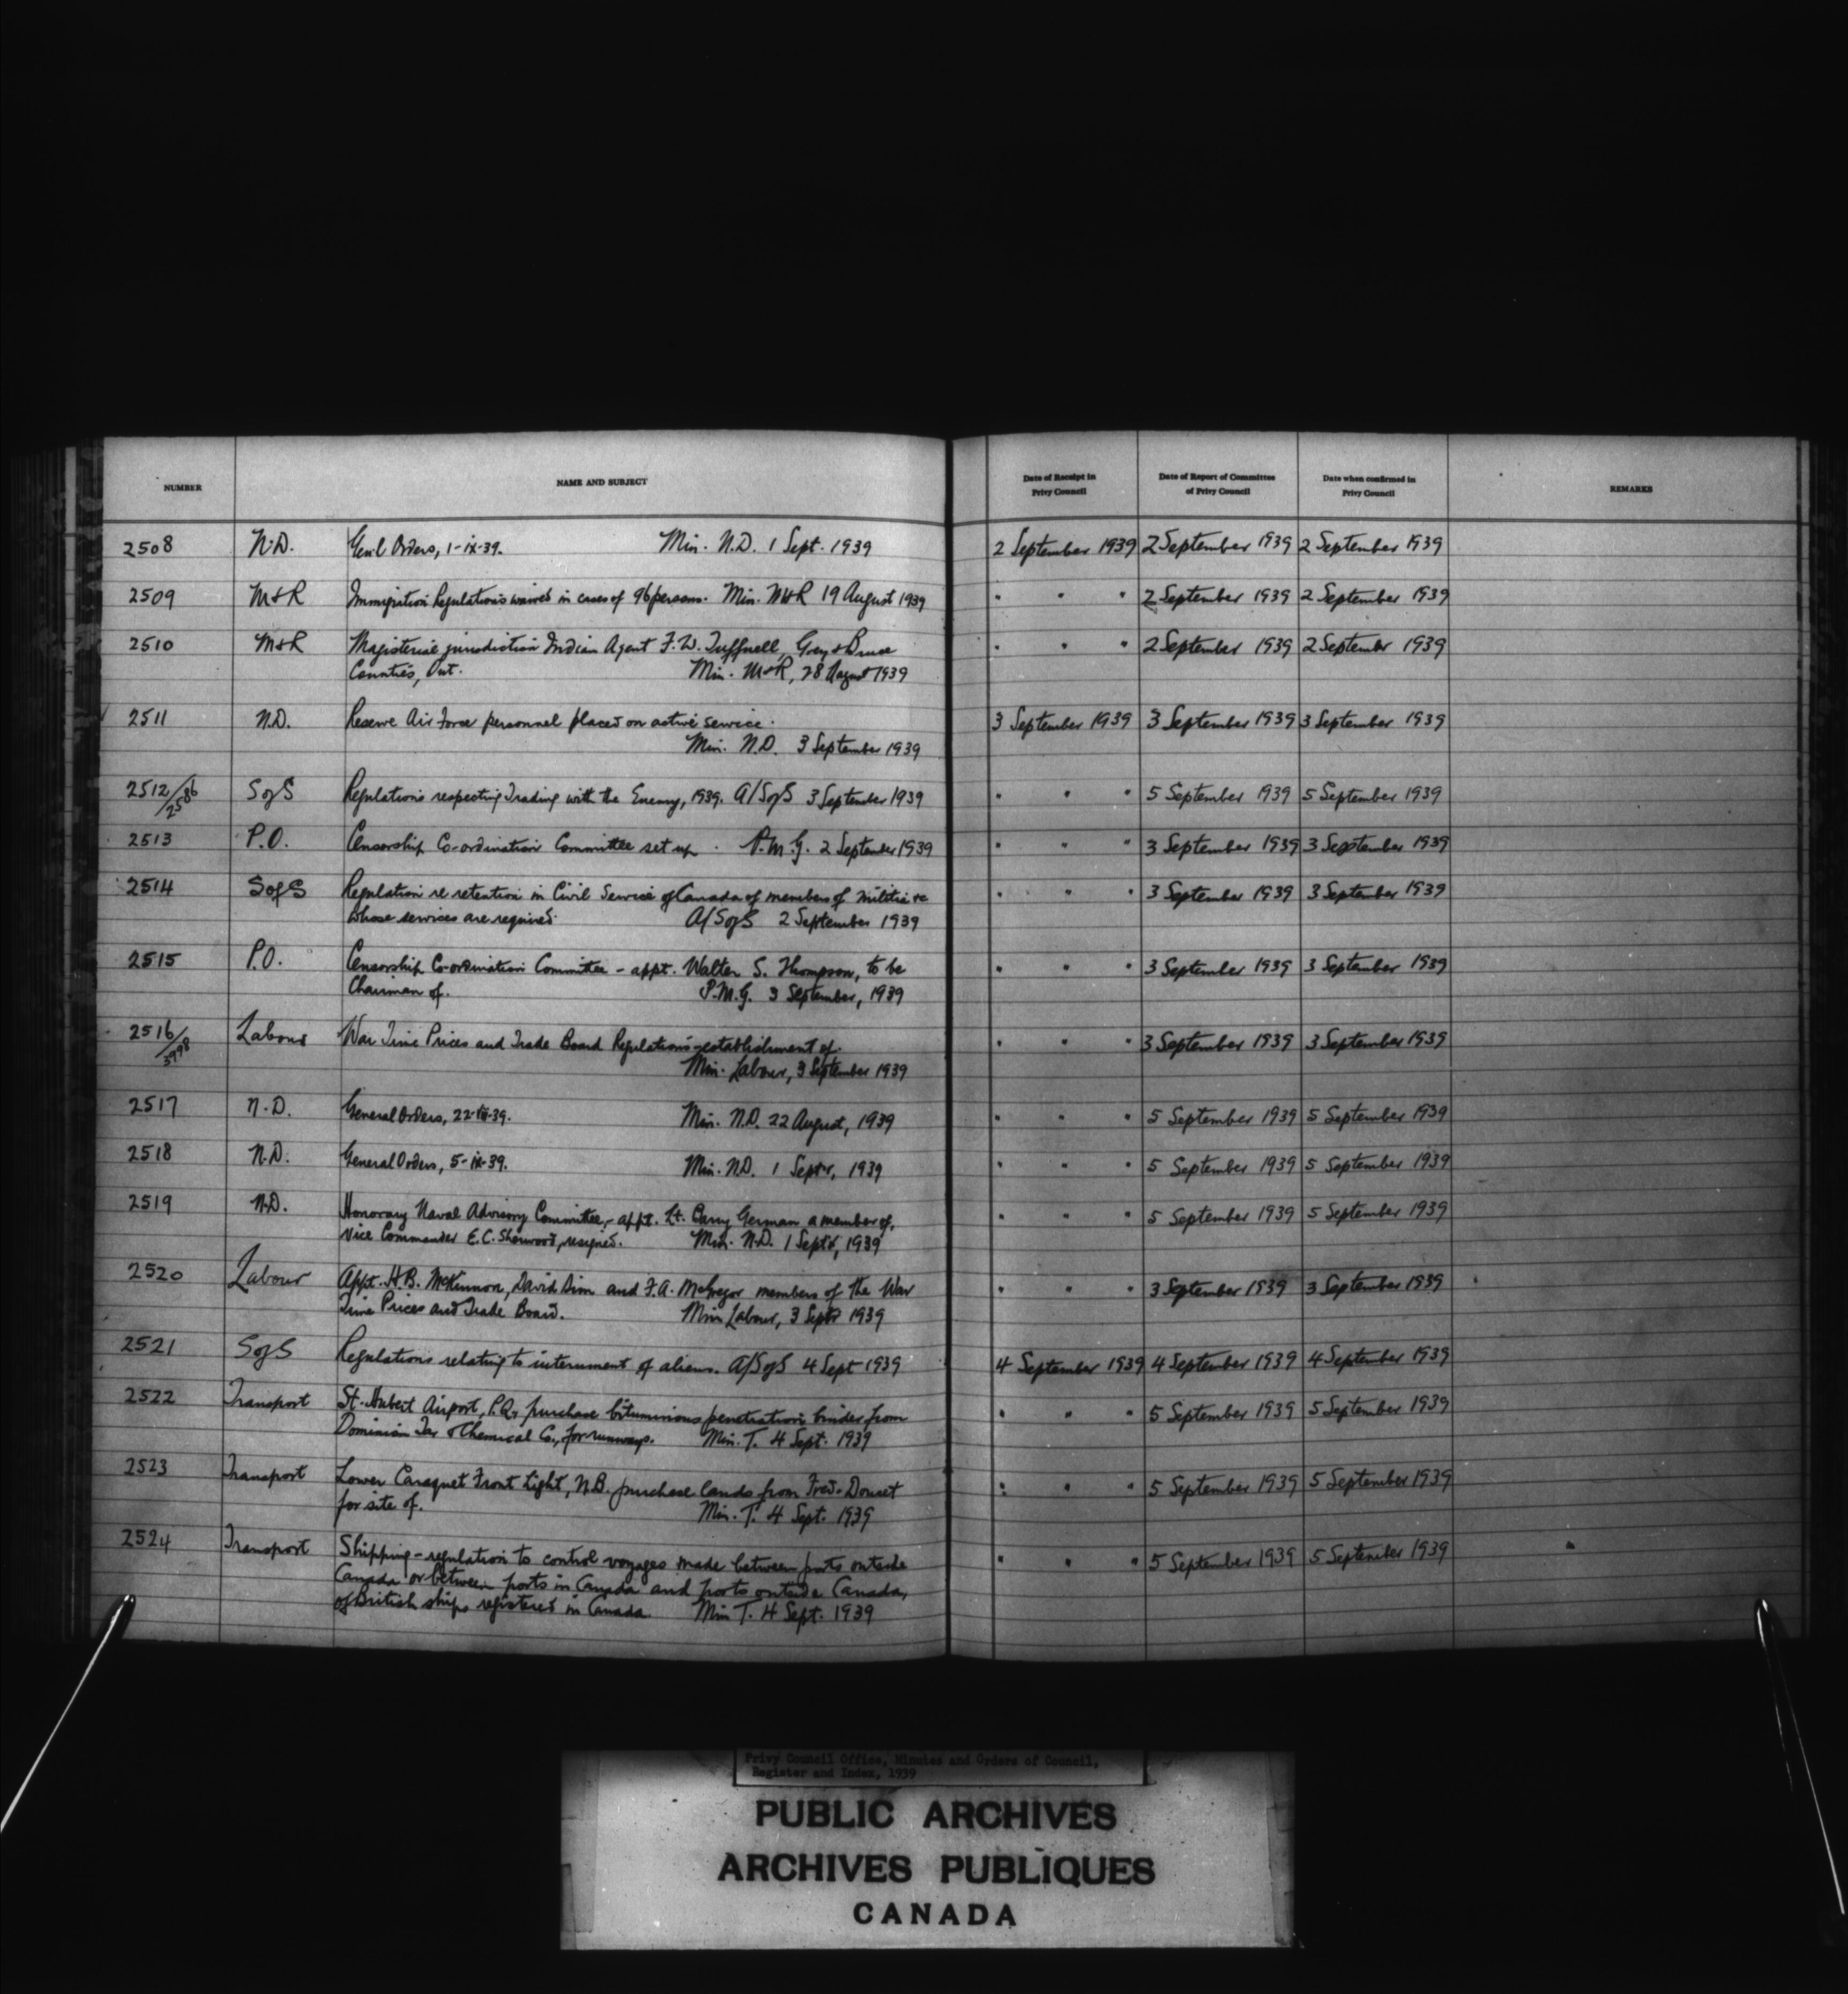 NUMBER NAME AND SUBJECT Date of Receipt in Privy Council Date of Report of Committee of Privy Council Date when confirmed in Privy Council REMARKS
2508 N.D. Gen'l Orders, 1-ix-39. Min. N.D. 1 Sept. 1939 2 September 1939 2 September 1939 2 September 1939
2509 M&R Immigration Regulations waived in cases of 96 persons. Min. M&R 19 August 1939 " " " 2 September 1939 2 September 1939
2510 M&R Magisterial jurisdiction Indian Agent F.W. Tuffnell, Grey & Bruce " " " 2 September 1939 2 September 1939
Counties, Ont. Min. M&R, 28 August 1939
2511 N.D. Reserve Air Force personnel placed on active service. 3 September 1939 3 September 1939 3 September 1939
Min. N.D. 3 September 1939
2512/2586 SofS Regulations respecting Trading with the Enemy, 1939. A/SofS 3 September 1939 " " " 5 September 1939 5 September 1939
2513 P.O. Censorship Co-ordination Committee set up. P.M.G. 2 September 1939 " " " 3 September 1939 3 September 1939
2514 SofS Regulation re retention in Civil Service of Canada of members of militia etc " " " 3 September 1939 3 September 1939
whose services are required. A/SofS 2 September 1939
2515 P.O. Censorship Co-ordination Committee - appt. Walter S. Thompson, to be " " " 3 September 1939 3 September 1939
Chairman of. P.M.G. 3 September, 1939
2516/3998 Labour War Time Prices and Trade Board Regulations - establishment of. " " " 3 September 1939 3 September 1939
Min. Labour, 3 September 1939
2517 N.D. General Orders, 22-viii-39. Min. N.D. 22 August, 1939 " " " 5 September 1939 5 September 1939
2518 N.D. General Orders, 5-ix-39. Min. N.D. 1 Septr, 1939 " " " 5 September 1939 5 September 1939
2519 N.D. Honorary Naval Advisory Committee, - appt. Lt. Barry German a member of, " " " 5 September 1939 5 September 1939
vice Commander E.C. Sherwood, resigned. Min. N.D. 1 Septr, 1939
2520 Labour Appt. H.B. McKinnon, David Sim and F.A. McGregor members of the War " " " 3 September 1939 3 September 1939
Time Prices and Trade Board. Min Labour, 3 Septr 1939
2521 SofS Regulations relating to internment of aliens. A/SofS 4 Sept 1939 4 September 1939 4 September 1939 4 September 1939
2522 Transport St. Hubert Airport, P.Q., purchase bituminous penetration binder from " " " 5 September 1939 5 September 1939
Dominion Tar & Chemical Co., for runways. Min. T. 4 Sept. 1939
2523 Transport Lower Caraquet Front Light, N.B. purchase lands from Fred. Doucet " " " 5 September 1939 5 September 1939
for site of. Min. T. 4 Sept. 1939
2524 Transport Shipping - regulation to control voyages made between ports outside " " " 5 September 1939 5 September 1939
Canada or between ports in Canada and ports outside Canada,
of British ships registered in Canada. Min T. 4 Sept. 1939
Privy Council Office, Minutes and Orders of Council,
Register and Index, 1939
PUBLIC ARCHIVES
ARCHIVES PUBLIQUES
CANADA